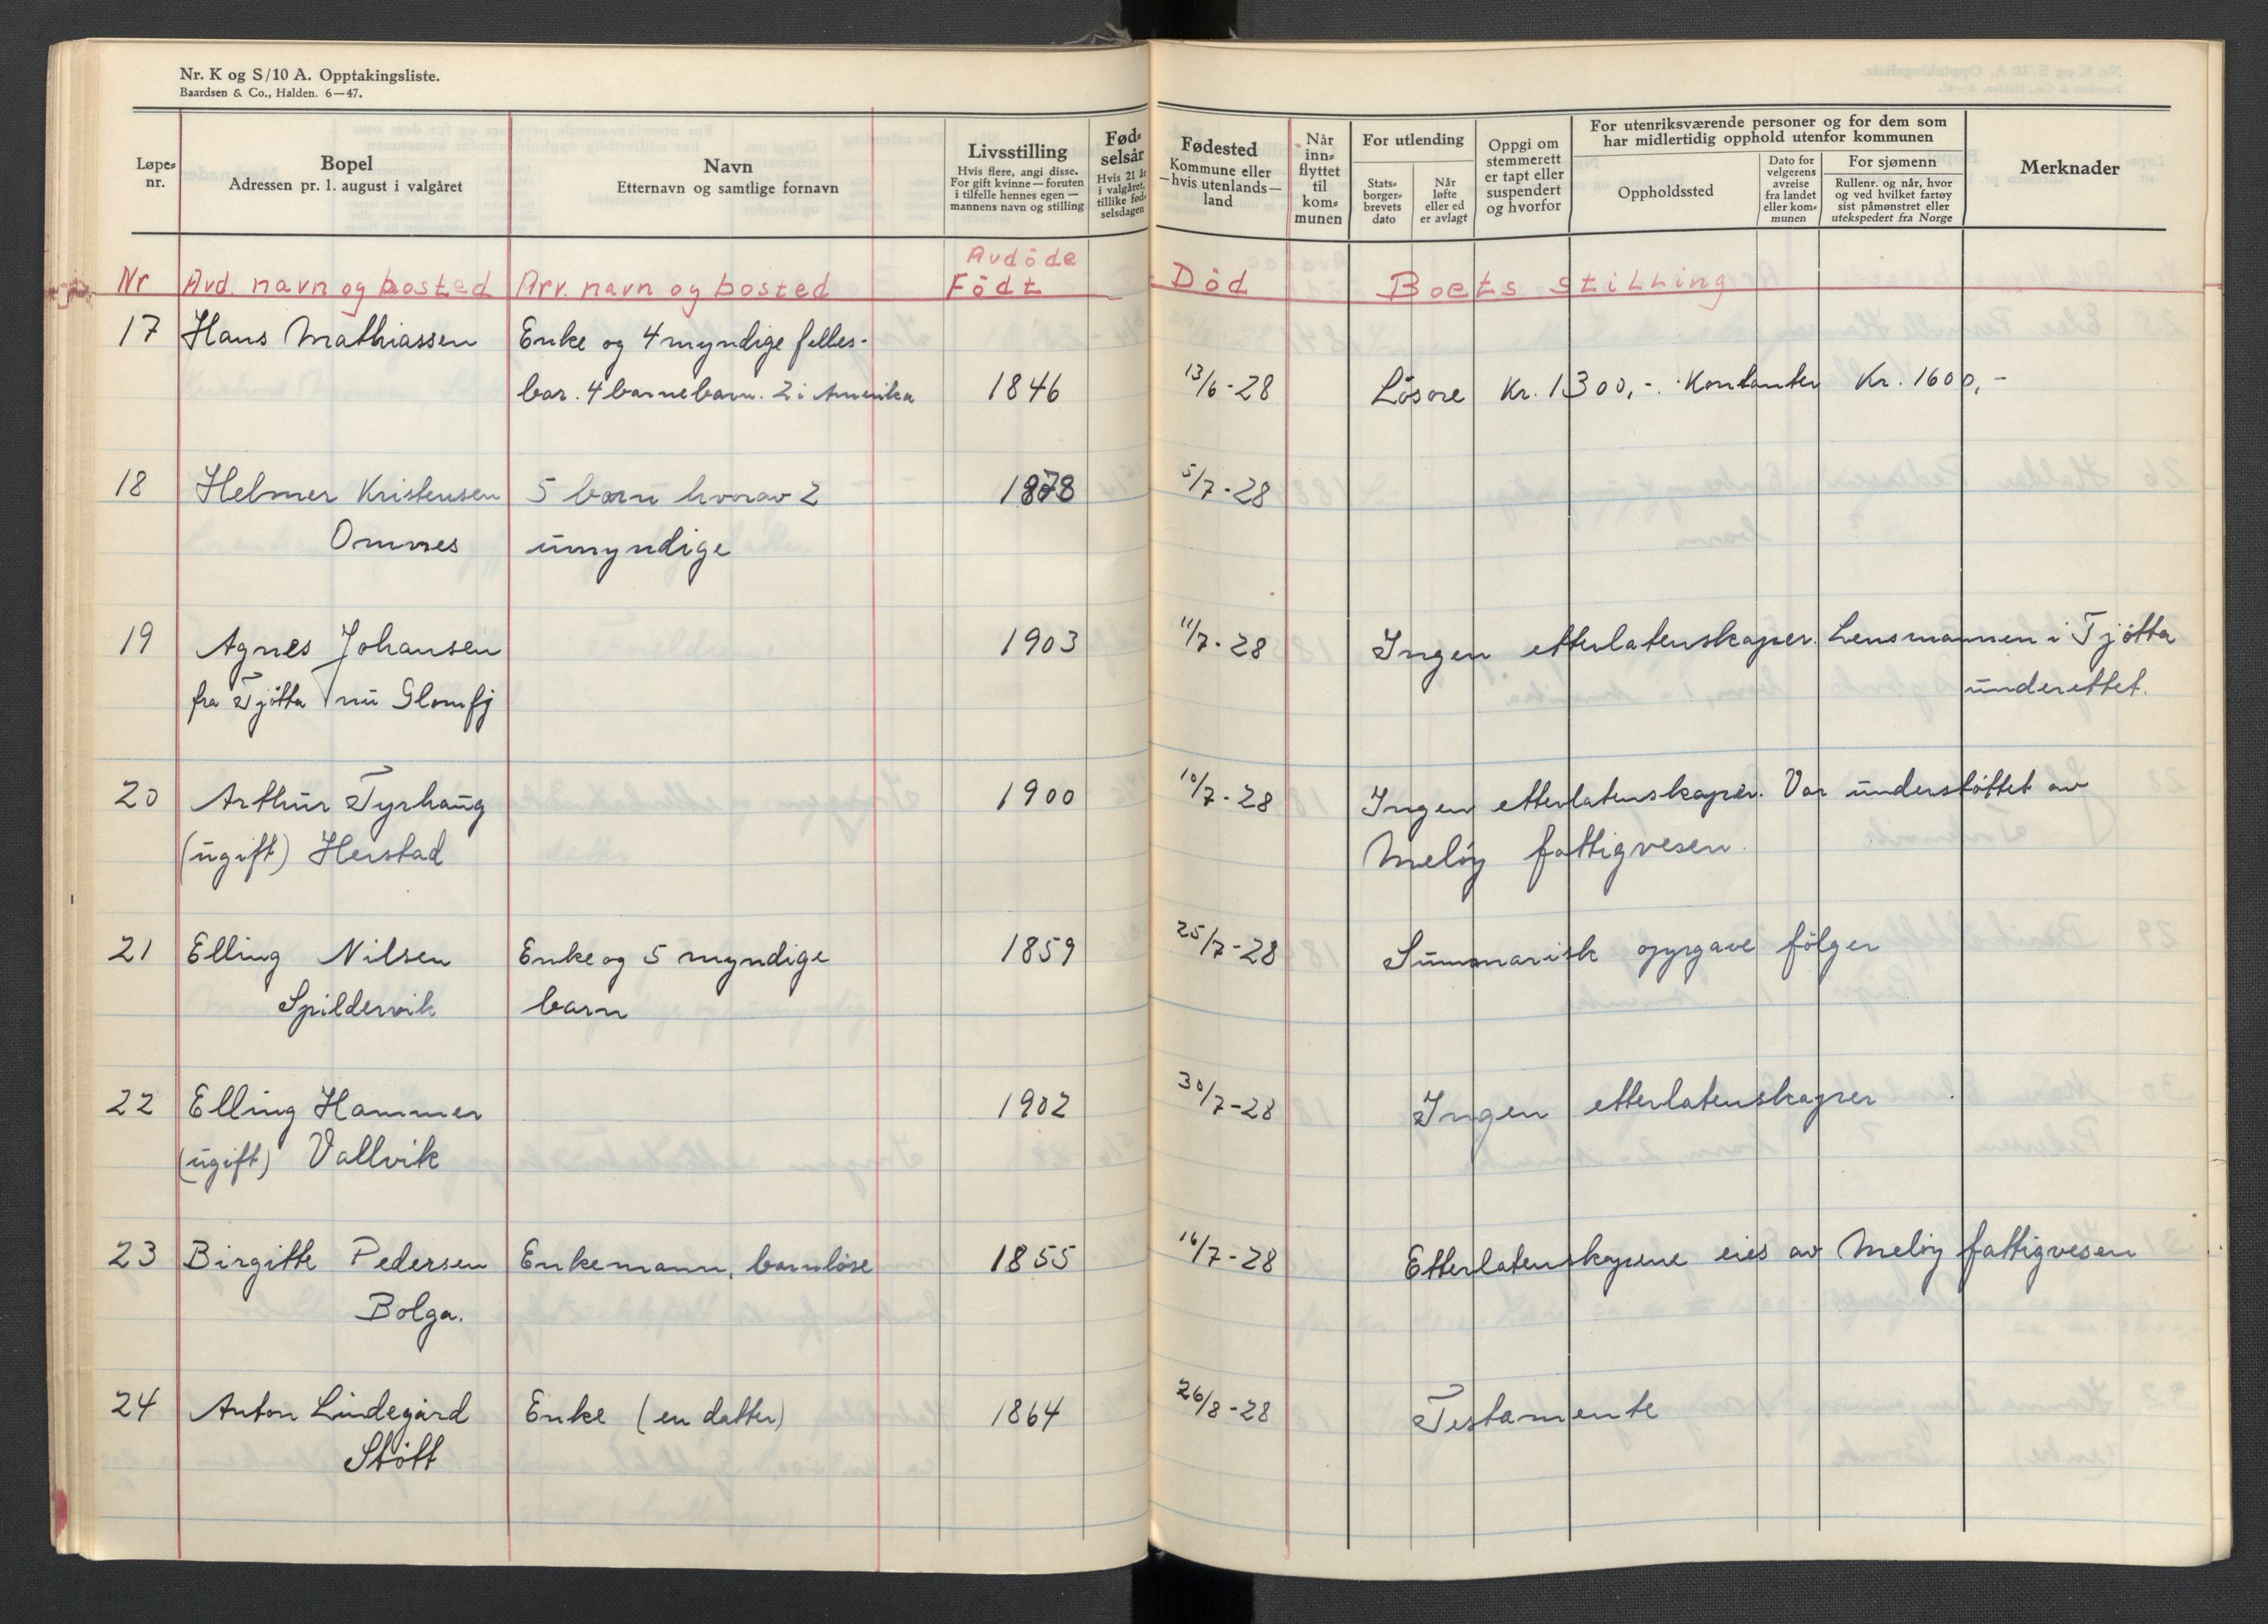 Nr. K og S/10 A. Opptakingsliste.
Baardsen & Co., Halden. 6—47.
Løpe-
nr.
Bopel
Adressen pr. 1. august i valgåret
Navn
Etternavn og samtlige fornavn
Livsstilling
Hvis flere, angi disse.
For gift kvinne — foruten
i tilfelle hennes egen —
mannens navn og stilling
Fød-
selsår
Hvis 21 år
i valgåret,
tillike fød-
selsdagen
Fødested
Kommune eller
—hvis utenlands—
land
Når
inn-
flyttet
til
kom-
munen
For utlending
Stats-
borger-
brevets
dato
Når
løfte
eller ed
er avlagt
Oppgi om
stemmerett
er tapt eller
suspendert
og hvorfor
For utenriksværende personer og for dem som
har midlertidig opphold utenfor kommunen
Oppholdssted
Dato for
velgerens
avreise
fra landet
eller kom-
munen
For sjømenn
Rullenr. og når, hvor
og ved hvilket fartøy
sist påmønstret eller
utekspedert fra Norge
Merknader
Avdöde
Nr Avd. navn og bosted Arv. navn og bosted Födt Död Boets stilling
17 Hans Mathiassen Enke og 4 myndige felles-
bar. 4 barnebarn. 2 i Amerika 1846 13/6-28 Lösöre Kr. 1300,-. Kontanter Kr. 1600,-
18 Helmer Kristensen 5 barn hvorav 2 1878 5/7-28
Ornes umyndige
19 Agnes Johansen 1903 11/7-28 Ingen etterlatenskaper. Lensmannen i Tjötta
fra Tjötta nu Glomfj underettet.
20 Arthur Tyrhaug 1900 10/7-28 Ingen etterlatenskaper. Var understöttet av
(ugift) Herstad Meløy fattigvesen.
21 Elling Nilsen Enke og 5 myndige 1859 25/7-28 Summarisk opgave fölger
Spildervik barn
22 Elling Hammer 1902 30/7-28 Ingen etterlatenskaper
(ugift) Vallvik
23 Birgitte Pedersen Enkemann, barnlöse 1855 16/7-28 Etterlatenskapene eies av Meløy fattigvesen
Bolga.
24 Anton Lindegård Enke (en datter) 1864 26/8-28 Testamente
Stött